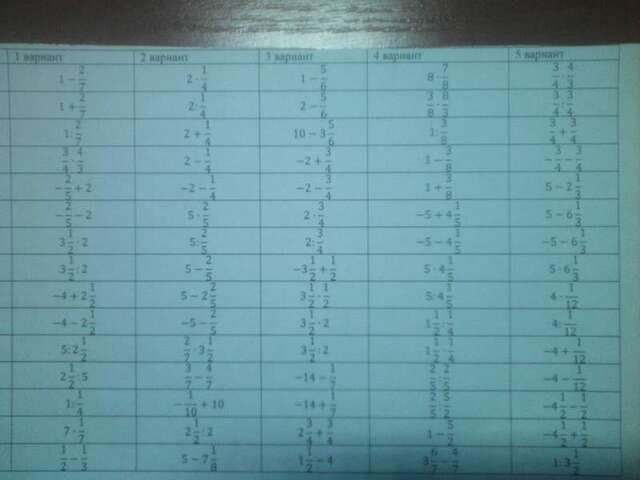 1 вариант 2 вариант 3 вариант 4 вариант 5 вариант
1 − 2/7 2 · 1/4 1 − 5/6 8 · 7/8 3/4 · 4/3
1 + 2/7 2: 1/4 2 − 5/6 3/8 · 8/3 3/4 : 3/4
1: 2/7 2 + 1/4 10 − 3 5/6 1: 3/8 3/4 + 3/4
3/4 · 4/3 2 − 1/4 −2 + 3/4 1 − 3/8 − 3/4 − 3/4
− 2/5 + 2 −2 − 1/4 −2 − 3/4 1 + 3/8 5 − 2 1/3
− 2/5 − 2 5 · 2/5 2 · 3/4 −5 + 4 1/5 5 − 6 1/3
3 1/2 · 2 5: 2/5 2: 3/4 −5 − 4 1/5 −5 − 6 1/3
3 1/2 : 2 5 − 2/5 −3 1/2 + 1/2 5 · 4 1/5 5 · 6 1/3
−4 + 2 1/2 5 − 2 2/5 3 1/2 : 1/2 5: 4 1/5 4 · 1/12
−4 − 2 1/2 −5 − 2/5 3 1/2 · 2 4: 1/12
5: 2 1/2 2/7 · 3 1/2 3 1/2 : 2 −4 + 1/12
2 1/2 : 5 3/7 − 4/7 −14 − 1/7 −4 − 1/12
1: 1/4 − 1/10 + 10 −14 + 1/7 −4 1/2 − 1/2
7 · 1/7 2 1/2 : 2 2 3/4 + 3/4 1 − 5/2 −4 1/2 + 1/2
1/2 − 1/3 5 − 7 1/8 1 1/2 − 4 3 6/7 − 4/7 1: 3 1/2